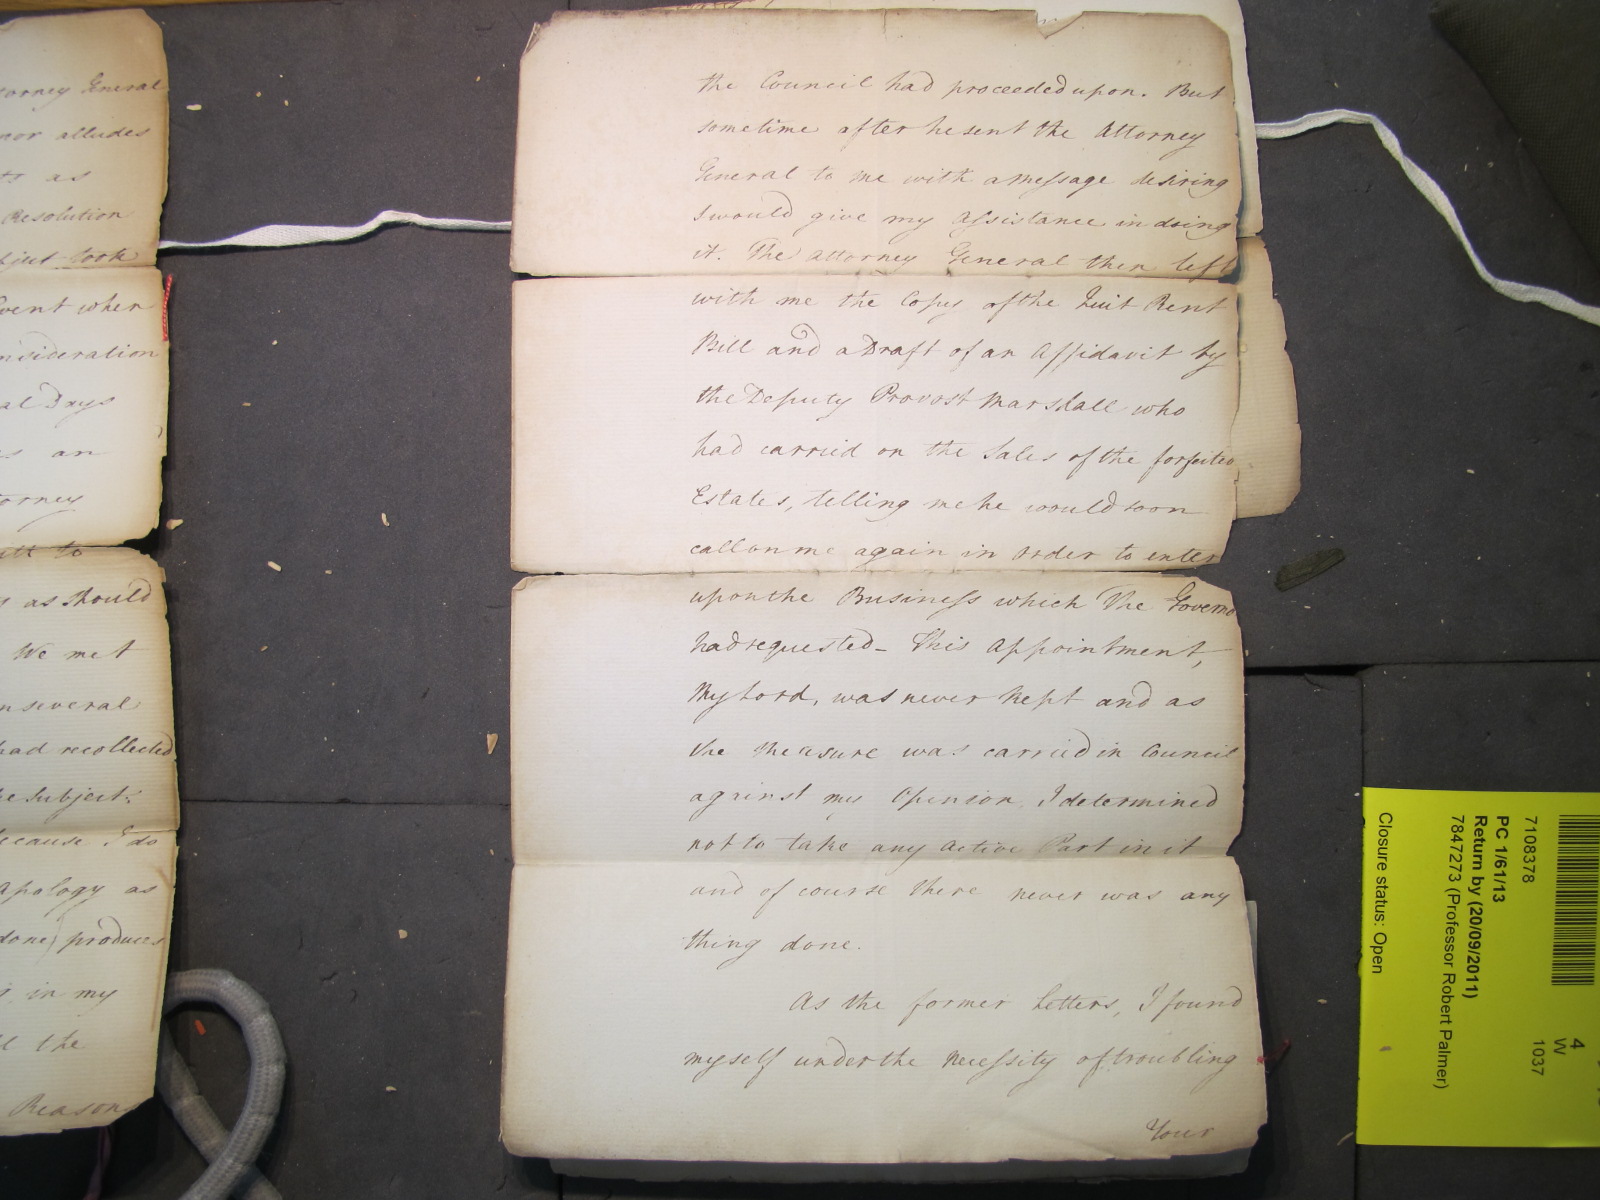 torney General
nor alludes
ts as
Resolution
bject took
vent when
nsideration
al Days
s an
torney
to
s as should
We met
n several
had recollected
he Subject.
because I do
apology as
done) produces
s in my
ll the
Reasons
the Council had proceeded upon. But
sometime after he sent the Attorney
General to me with a Message desiring
I would give my Assistance in doing
it. The Attorney General then left
with me the Copy of the Quit Rent
Bill and a Draft of an Affidavit by
the Deputy Provost Marshall who
had carried on the Sales of the forfeited
Estates, telling me he would soon
call on me again in order to enter
upon the Business which The Governor
had requested – This Appointment,
My Lord, was never kept and as
the Measure was carried in Council
against my Opinion I determined
not to take any active Part in it
and of course there never was any
thing done.
As the former Letters, I found
myself under the necessity of troubling
Your
7108378
PC 1/61/13
Return by (20/09/2011)
7847273 (Professor Robert Palmer)
Closure status: Open
4
W
1037